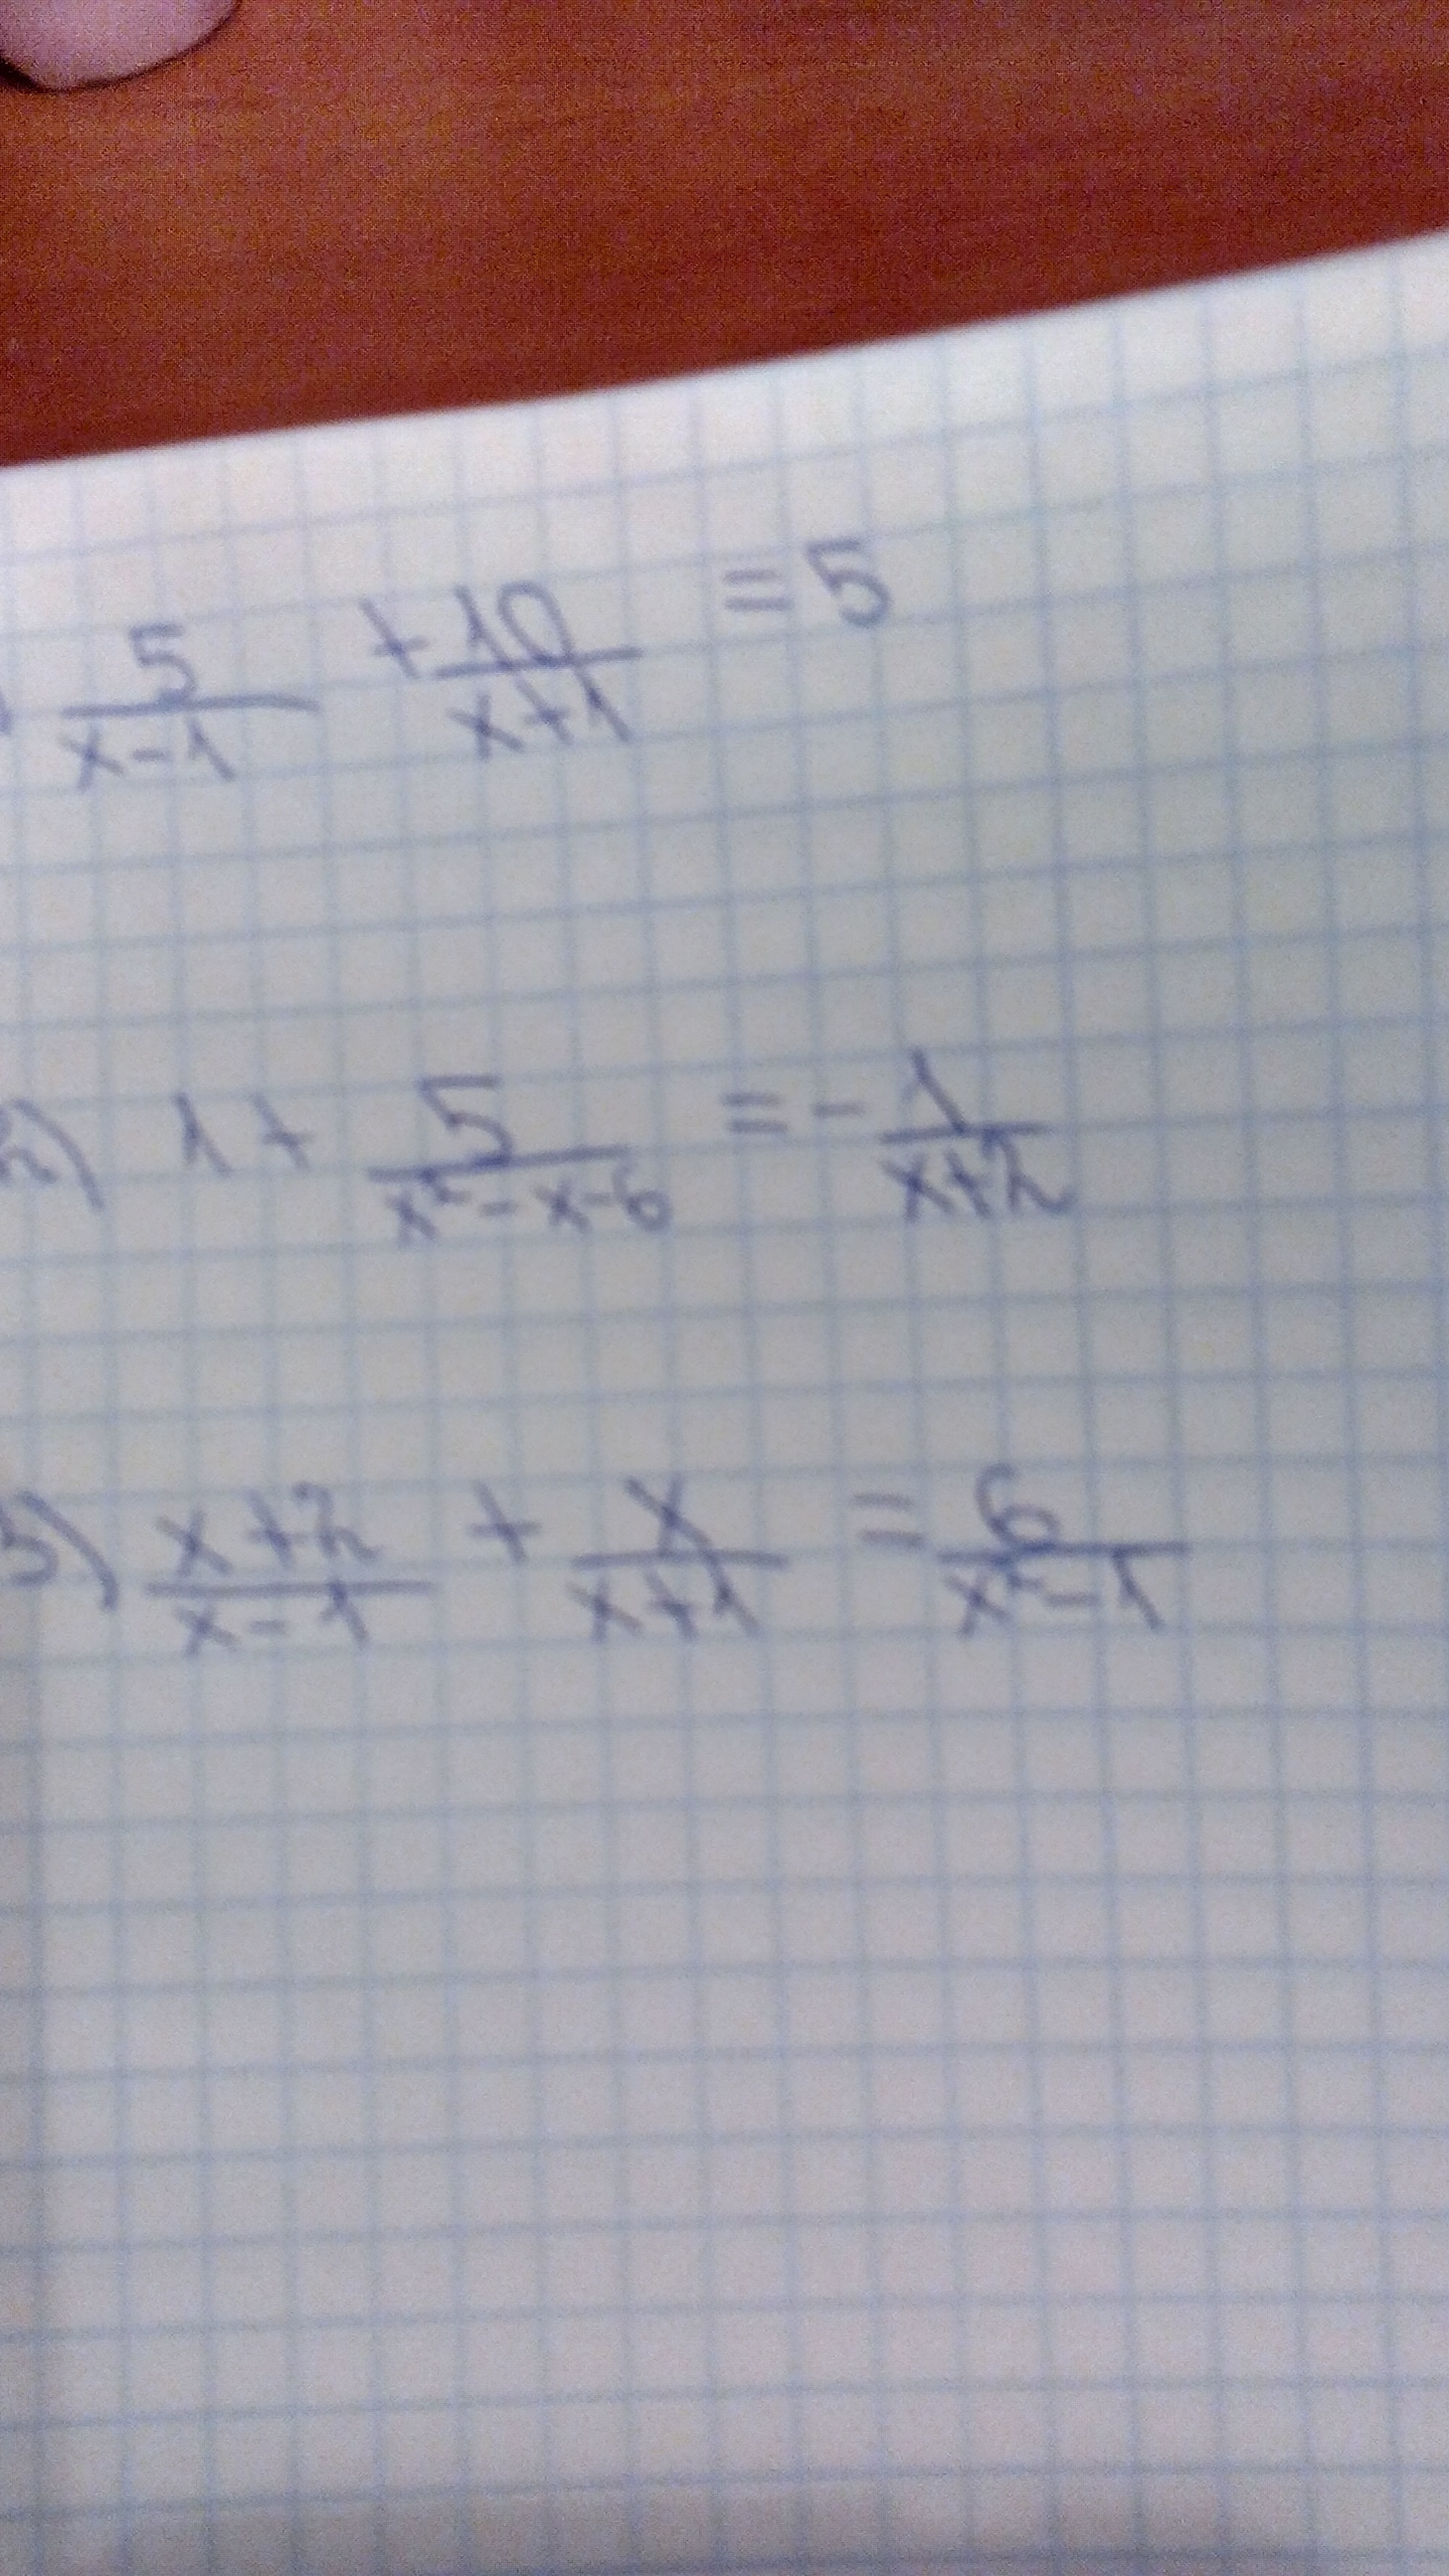 5/(x-1) + 10/(x+1) = 5
2) 1 + 5/(x²-x-6) = - 1/(x+2)
3) (x+2)/(x-1) + x/(x+1) = 6/(x²-1)